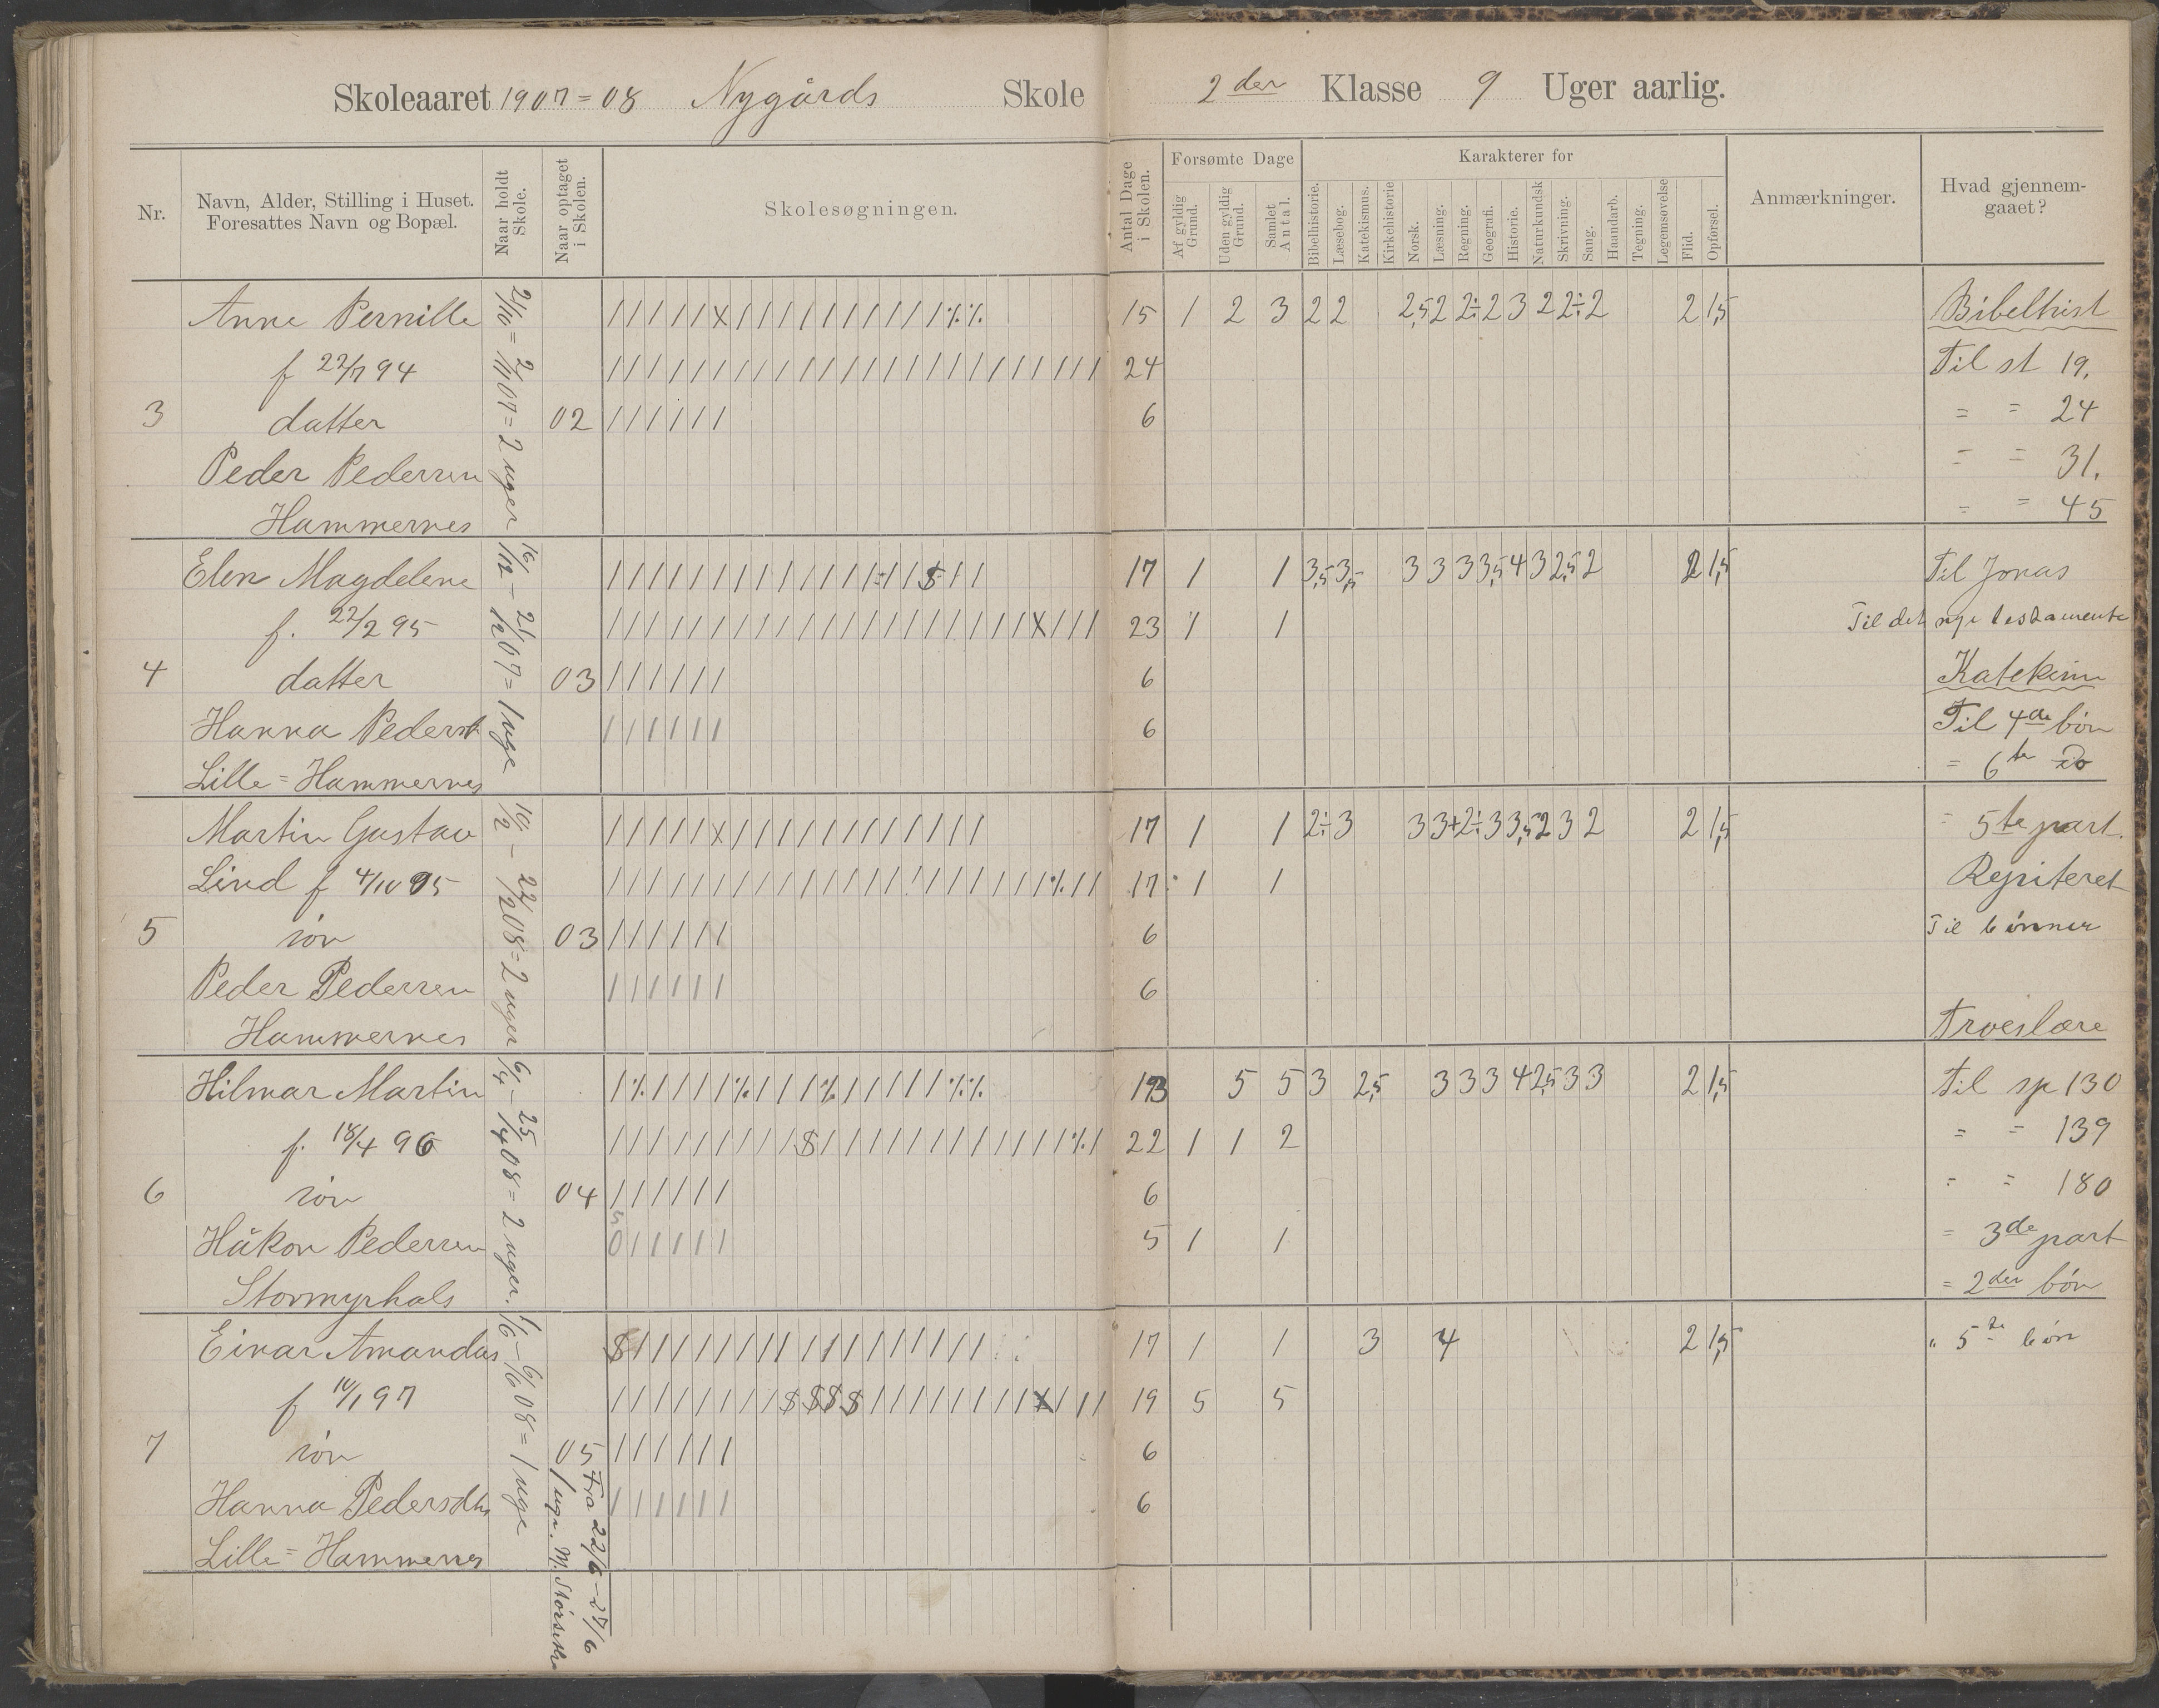 Skoleaaret 1907=08 Nygårds Skole 2der Klasse 9 Uger aarlig.
Nr.
Navn, Alder, Stilling i Huset.
Foresattes Navn og Bopæl.
Naar holdt
Skole.
Naar optaget
i Skolen.
Skolesøgningen.
Antal Dage
i Skolen.
Forsømte Dage
Af gyldig
Grund.
Uden gyldig
Grund.
Samlet
Antal.
Karakterer for
Bibelhistorie.
Læsebog.
Katekismus.
Kirkehistorie
Norsk.
Læsning.
Regning.
Geografi.
Historie.
Naturkundsk
Skrivning.
Sang.
Haandarb.
Tegning.
Legemsøvelse
Flid.
Opførsel.
Anmærkninger.
Hvad gjennem-
gaaet?
Anne Pernille 15 1 2 3 2 2 2,5 2 2÷ 2 3 2 2÷ 2 2 1,5 Bibelhist
f 22/7 94 24 Til st 19.
3 datter 02 6 = = 24
Peder Pedersen = = 31.
Hammernes = = 45
2/10 = 2/11 07 = 2 uger
Elen Magdelene 17 1 1 3,5 3,5 3 3 3 3,5 4 3 2,5 2 2 1,5 Til Jonas
f. 22/2 95 23 1 1 Til det nye testamente
4 datter 03 6 Katekism
Hanna Pedersd 6 Til 4de bøn
Lille=Hammernes = 6te do
16/12 – 21/12 07 = 1 uge
Martin Gustav 17 1 1 2÷ 3 3 3+ 2÷ 3 3,5 2 3 2 2 1,5 = 5te part.
Lind f 4/10 95 17 1 1 Repiteret
5 søn 03 6 Til bønner
Peder Pedersen 6
Hammernes Troeslære
10/2 – 22/2 08 = 2 uger
Hilmar Martin 13 5 5 3 2,5 3 3 3 4 2,5 3 3 2 1,5 Til sp 130
f. 18/4 96 22 1 1 2 = = 139
6 søn 04 6 = = 180
Håkon Pedersen 5 1 1 = 3de part
Stormyrhals = 2den bøn
6/4 – 25/4 08 = 2 uger.
Einar Amandus 17 1 1 3 4 2 1,5 " 5te bøn
f 10/1 97 19 5 5
7 søn 05 6
Hanna Pedersdtr 6
Lille=Hammernes
1/6 – 6/6 08 = 1 uge
Fra 22/6 – 27/6
1 uge. M. Størseth